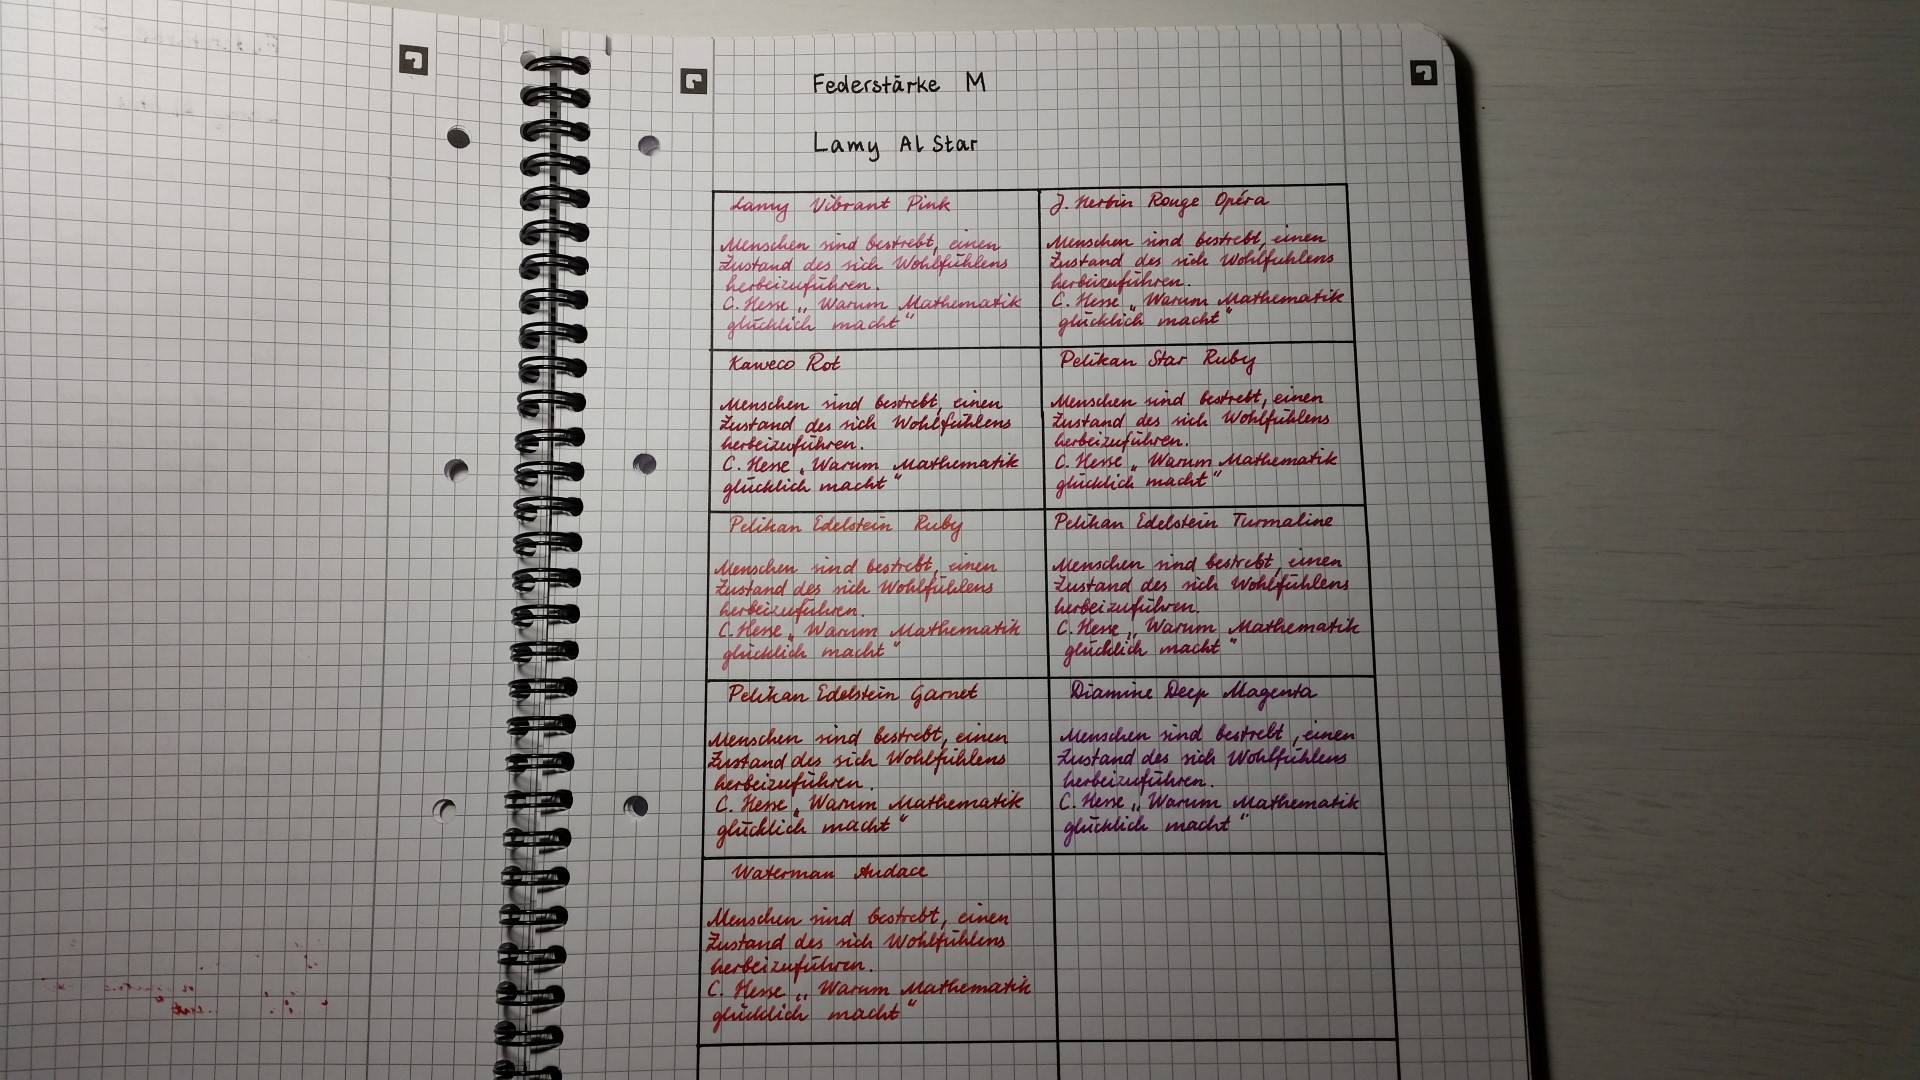 Federstärke M
Lamy Al Star
Lamy Vibrant Pink
Menschen sind bestrebt, einen
Zustand des sich Wohlfühlens
herbeizuführen.
C. Hesse „Warum Mathematik
glücklich macht“
J. Herbin Rouge Opéra
Menschen sind bestrebt, einen
Zustand des sich Wohlfühlens
herbeizuführen.
C. Hesse „Warum Mathematik
glücklich macht“
Kaweco Rot
Menschen sind bestrebt, einen
Zustand des sich Wohlfühlens
herbeizuführen.
C. Hesse „Warum Mathematik
glücklich macht“
Pelikan Star Ruby
Menschen sind bestrebt, einen
Zustand des sich Wohlfühlens
herbeizuführen.
C. Hesse „Warum Mathematik
glücklich macht“
Pelikan Edelstein Ruby
Menschen sind bestrebt, einen
Zustand des sich Wohlfühlens
herbeizuführen.
C. Hesse „Warum Mathematik
glücklich macht“
Pelikan Edelstein Turmaline
Menschen sind bestrebt einen
Zustand des sich Wohlfühlens
herbeizuführen.
C. Hesse „Warum Mathematik
glücklich macht“
Pelikan Edelstein Garnet
Menschen sind bestrebt, einen
Zustand des sich Wohlfühlens
herbeizuführen.
C. Hesse „Warum Mathematik
glücklich macht“
Diamine Deep Magenta
Menschen sind bestrebt, einen
Zustand des sich Wohlfühlens
herbeizuführen.
C. Hesse „Warum Mathematik
glücklich macht“
Waterman Audace
Menschen sind bestrebt, einen
Zustand des sich Wohlfühlens
herbeizuführen.
C. Hesse „Warum Mathematik
glücklich macht“